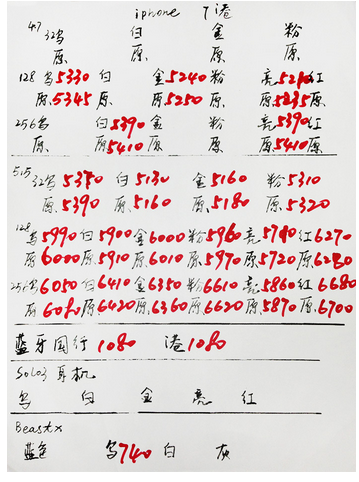 iphone 7港
4.7 32乌 白 金 粉
原 原 原 原
128乌5330 白 金5240 粉 亮5210红
原5345 原 原5250 原 原5235原
256乌 白5390 金 粉 亮5390红
原 原5410 原 原 原5410原
5.5 32乌5370 白5130 金5160 粉5310
原5390 原5160 原5180 原5320
128乌5990 白5900 金6000 粉5960 亮5710 红6270
原6000 原5910 原6010 原5970 原5720 原6280
256乌6050 白6410 金6350 粉6610 亮5860 红6680
原6080 原6420 原6360 原6620 原5870 原6700
蓝牙国行1080 港1080
Solo3耳机
乌 白 金 亮 红
Beastx
蓝色 乌740 白 灰